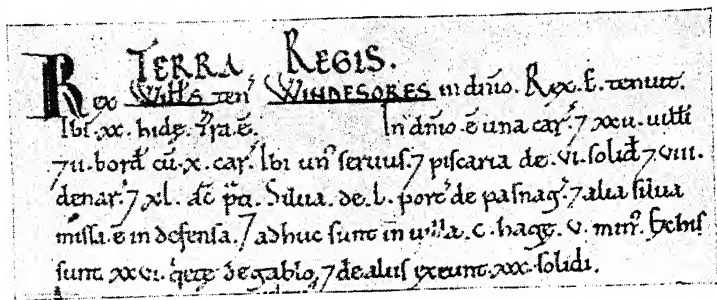 TERRA REGIS.
Rex Witts ten' WINDESORES in dn̄io. Rex. E. tenuit.
Ibi .xx. hidę. Tr̄a. ē. In dn̄io. ē una car̄. ⁊ xxii. uitti
⁊ ii. bord̄ cū .x. car̄. Ibi un' seruus. ⁊ piscaria de .vi. solid̄ ⁊ viii.
denar̄. ⁊ xl. ac̄ p̄ti. Silua. de .L. porc̄ de pasnaḡ. ⁊ alia silua
missa. ē in defensa. ⁊ adhuc sunt in uilla. c. hagę. v. min'. Ex his
sunt xxvi. q̄etę de gablo, ⁊ de aliis exeunt .xxx. solidi.